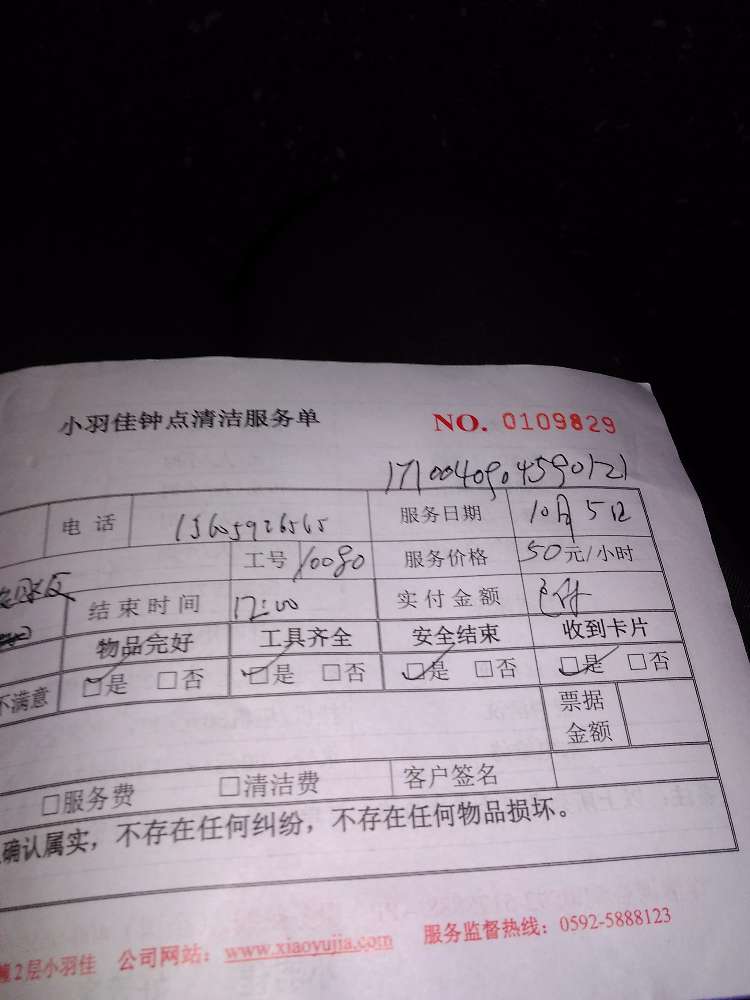 小羽佳钟点清洁服务单 NO. 0109829
1710040904590121
电话 13605926565 服务日期 10月5日
工号 10080 服务价格 50元/小时
结束时间 12:00 实付金额 已付
物品完好 工具齐全 安全结束 收到卡片
不满意 □是 □否 □是 □否 □是 □否 □是 □否
票据金额
□服务费 □清洁费 客户签名
确认属实，不存在任何纠纷，不存在任何物品损坏。
2层小羽佳 公司网站：www.xiaoyujia.com 服务监督热线：0592-5888123